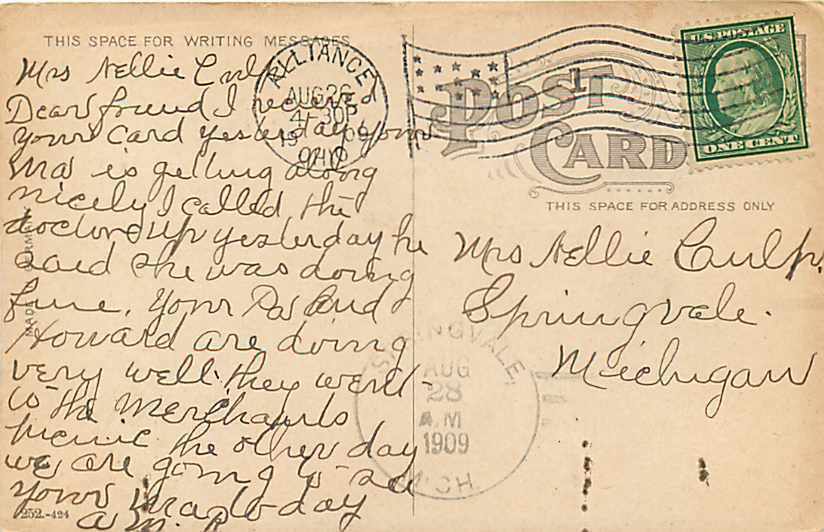 THIS SPACE FOR WRITING MESSAGES
Mrs Nellie Culp
Dear friend I received
your card yesterday your
Ma is getting along
nicely I called the
doctor up yesterday he
said she was doing
fine. Your Pa and
Howard are doing
very well they went
to the Merchants
picnic the other day
we are going to see
your Ma to day
252-424
MADE GERMANY
ALLIANCE
AUG 26
4-30P
1909
OHIO
POST
CARD
U.S. POSTAGE
ONE CENT
THIS SPACE FOR ADDRESS ONLY
Mrs Nellie Culp,
Springvale.
Michigan
SPRINGVALE,
AUG
28
A.M
1909
MICH.